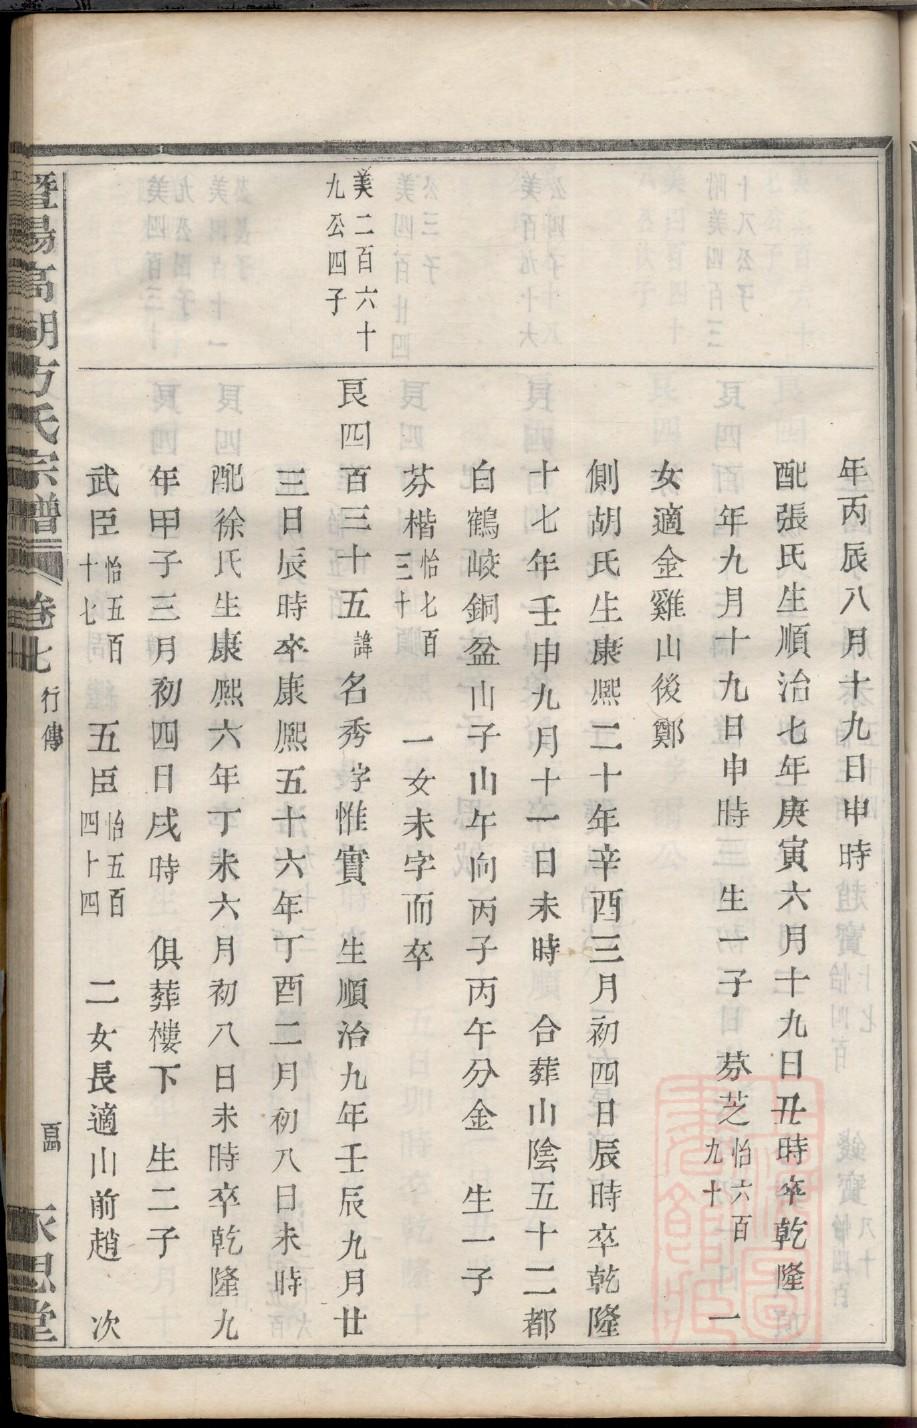 年丙辰八月十九日申時
配張氏生順治七年庚寅六月十九日丑時卒乾隆
十年九月十九日申時 生一子 芬芝怡六百九十 一
女適金雞山後鄭
側胡氏生康熙二十年辛酉三月初四日辰時卒乾隆
十七年壬申九月十一日未時 合葬山陰五十二都
白鶴峧銅盆山子山午向丙子丙午分金 生一子
芬楷怡七百三十 一女未字而卒
美二百六十九公四子
艮四百三十五諱名秀字惟實 生順治九年壬辰九月廿
三日辰時卒康熙五十六年丁酉二月初八日未時
配徐氏生康熙六年丁未六月初八日未時卒乾隆九
年甲子三月初四日戌時 俱葬樓下 生二子
武臣怡五百十七 五臣怡五百四十四 二女長適山前趙 次
暨陽高湖方氏宗譜 卷七 行傳 永思堂